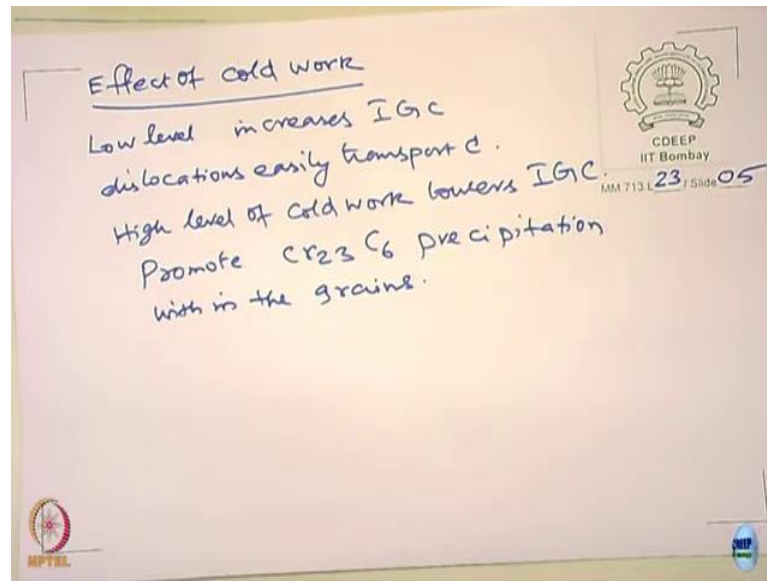 Effect of cold work
Low level increases IGC
dislocations easily transport C.
High level of cold work lowers IGC.
Promote Cr23 C6 precipitation
with in the grains.
CDEEP
IIT Bombay
MM 713 L 23 / Slide 05
NPTEL